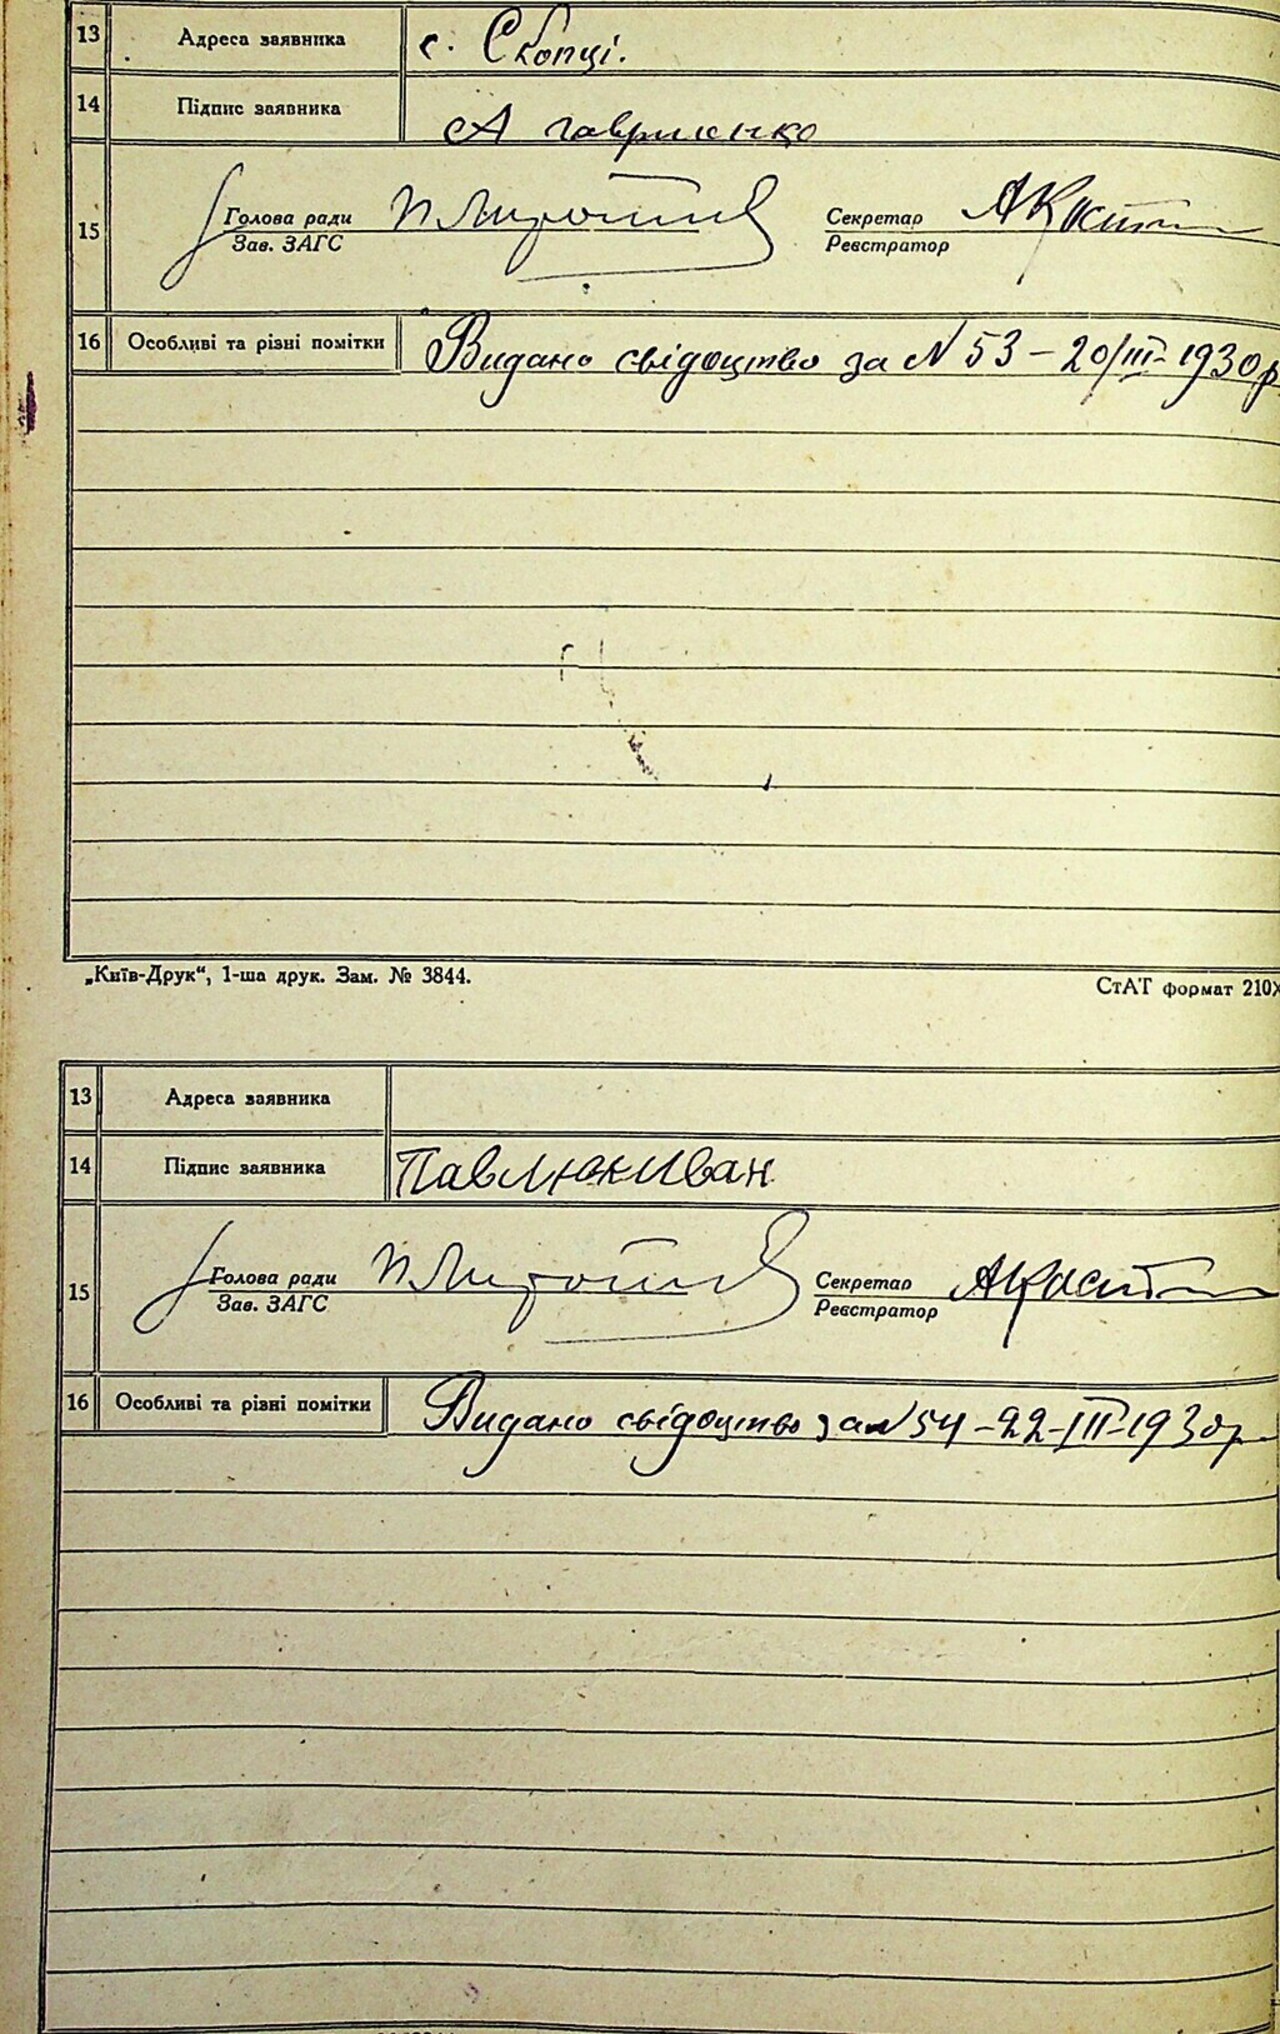 13 Адреса заявника с. Скопці.
14 Підпис заявника А Гавриленко
15 Голова ради Секретар
Зав. ЗАГС Реєстратор
16 Особливі та різні помітки Видано свідоцтво за N 53 – 20/III – 1930 р
„Київ-Друк“, 1-ша друк. Зам. № 3844. СтАТ формат 210×
13 Адреса заявника
14 Підпис заявника Павлюк Иван
15 Голова ради Секретар
Зав. ЗАГС Реєстратор
16 Особливі та різні помітки Видано свідоцтво за N 54 – 22 – III – 1930 р.